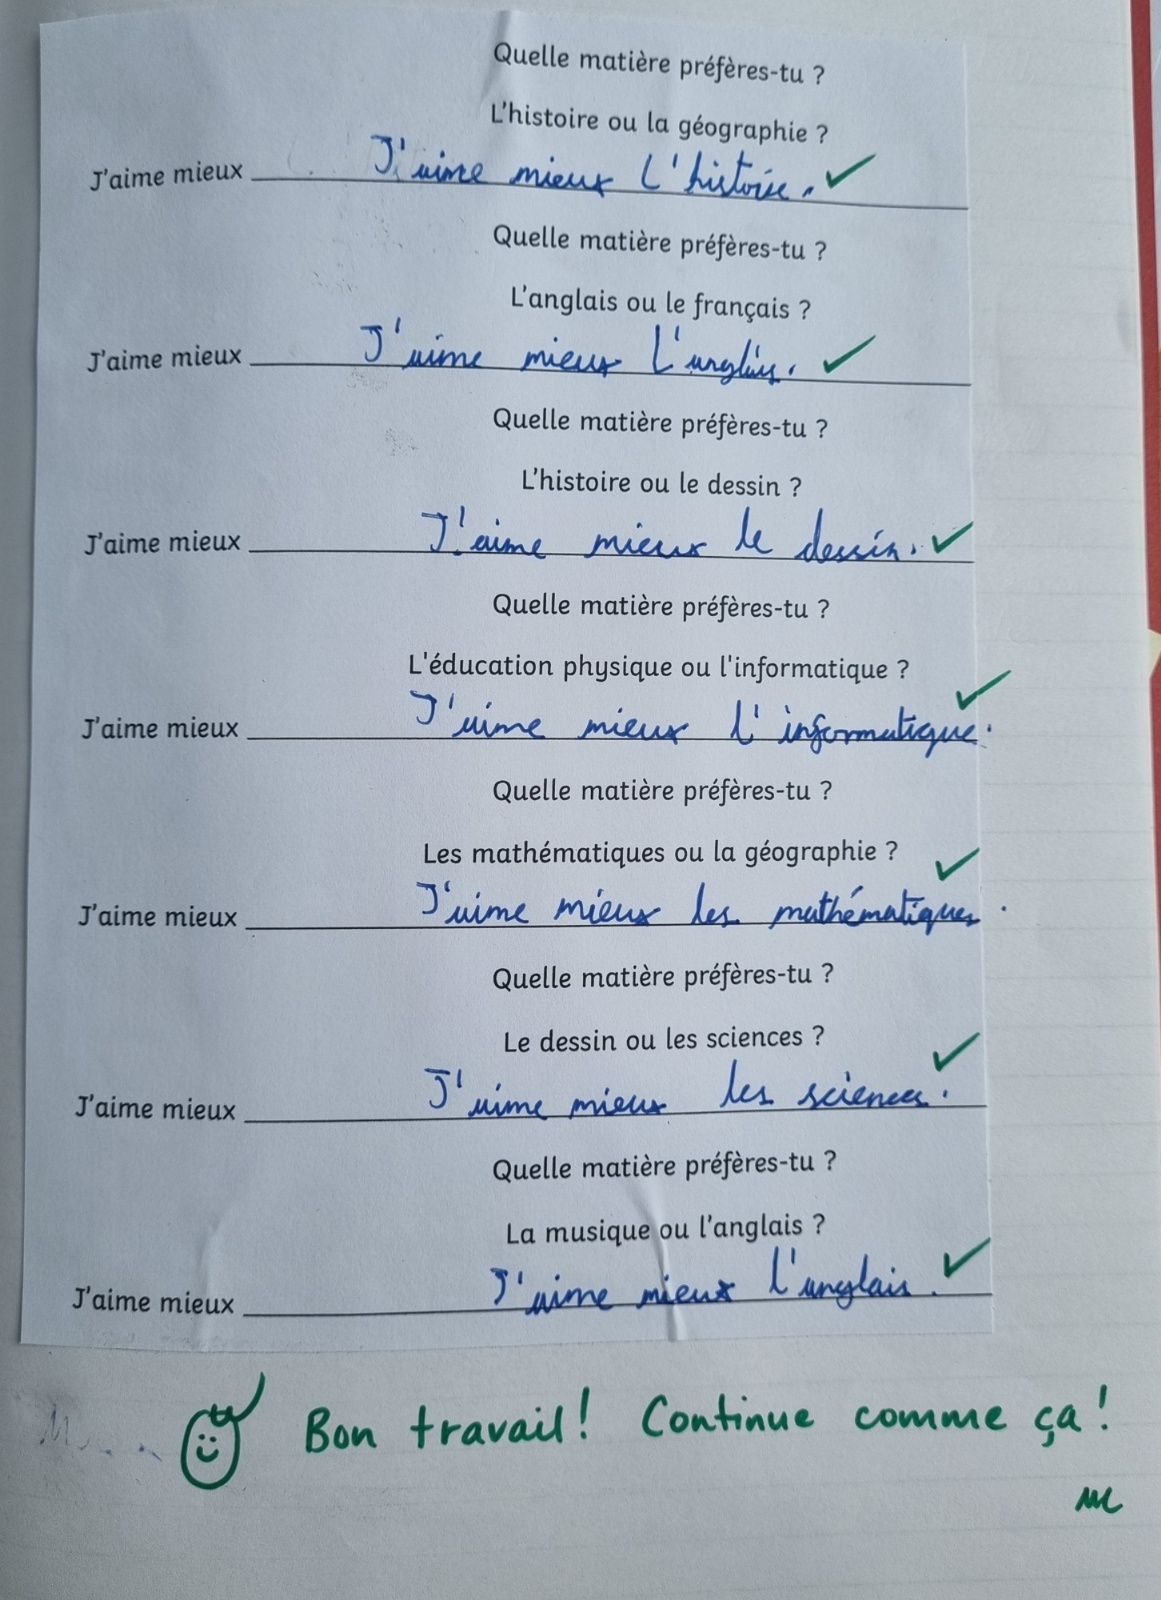 Quelle matière préfères-tu ?
L'histoire ou la géographie ?
J'aime mieux J'aime mieux L'histoire.
Quelle matière préfères-tu ?
L'anglais ou le français ?
J'aime mieux J'aime mieux L'anglais.
Quelle matière préfères-tu ?
L'histoire ou le dessin ?
J'aime mieux J'aime mieux le dessin.
Quelle matière préfères-tu ?
L'éducation physique ou l'informatique ?
J'aime mieux J'aime mieux l'informatique.
Quelle matière préfères-tu ?
Les mathématiques ou la géographie ?
J'aime mieux J'aime mieux les mathématiques.
Quelle matière préfères-tu ?
Le dessin ou les sciences ?
J'aime mieux J'aime mieux les sciences.
Quelle matière préfères-tu ?
La musique ou l'anglais ?
J'aime mieux J'aime mieux l'anglais.
Bon travail! Continue comme ça!